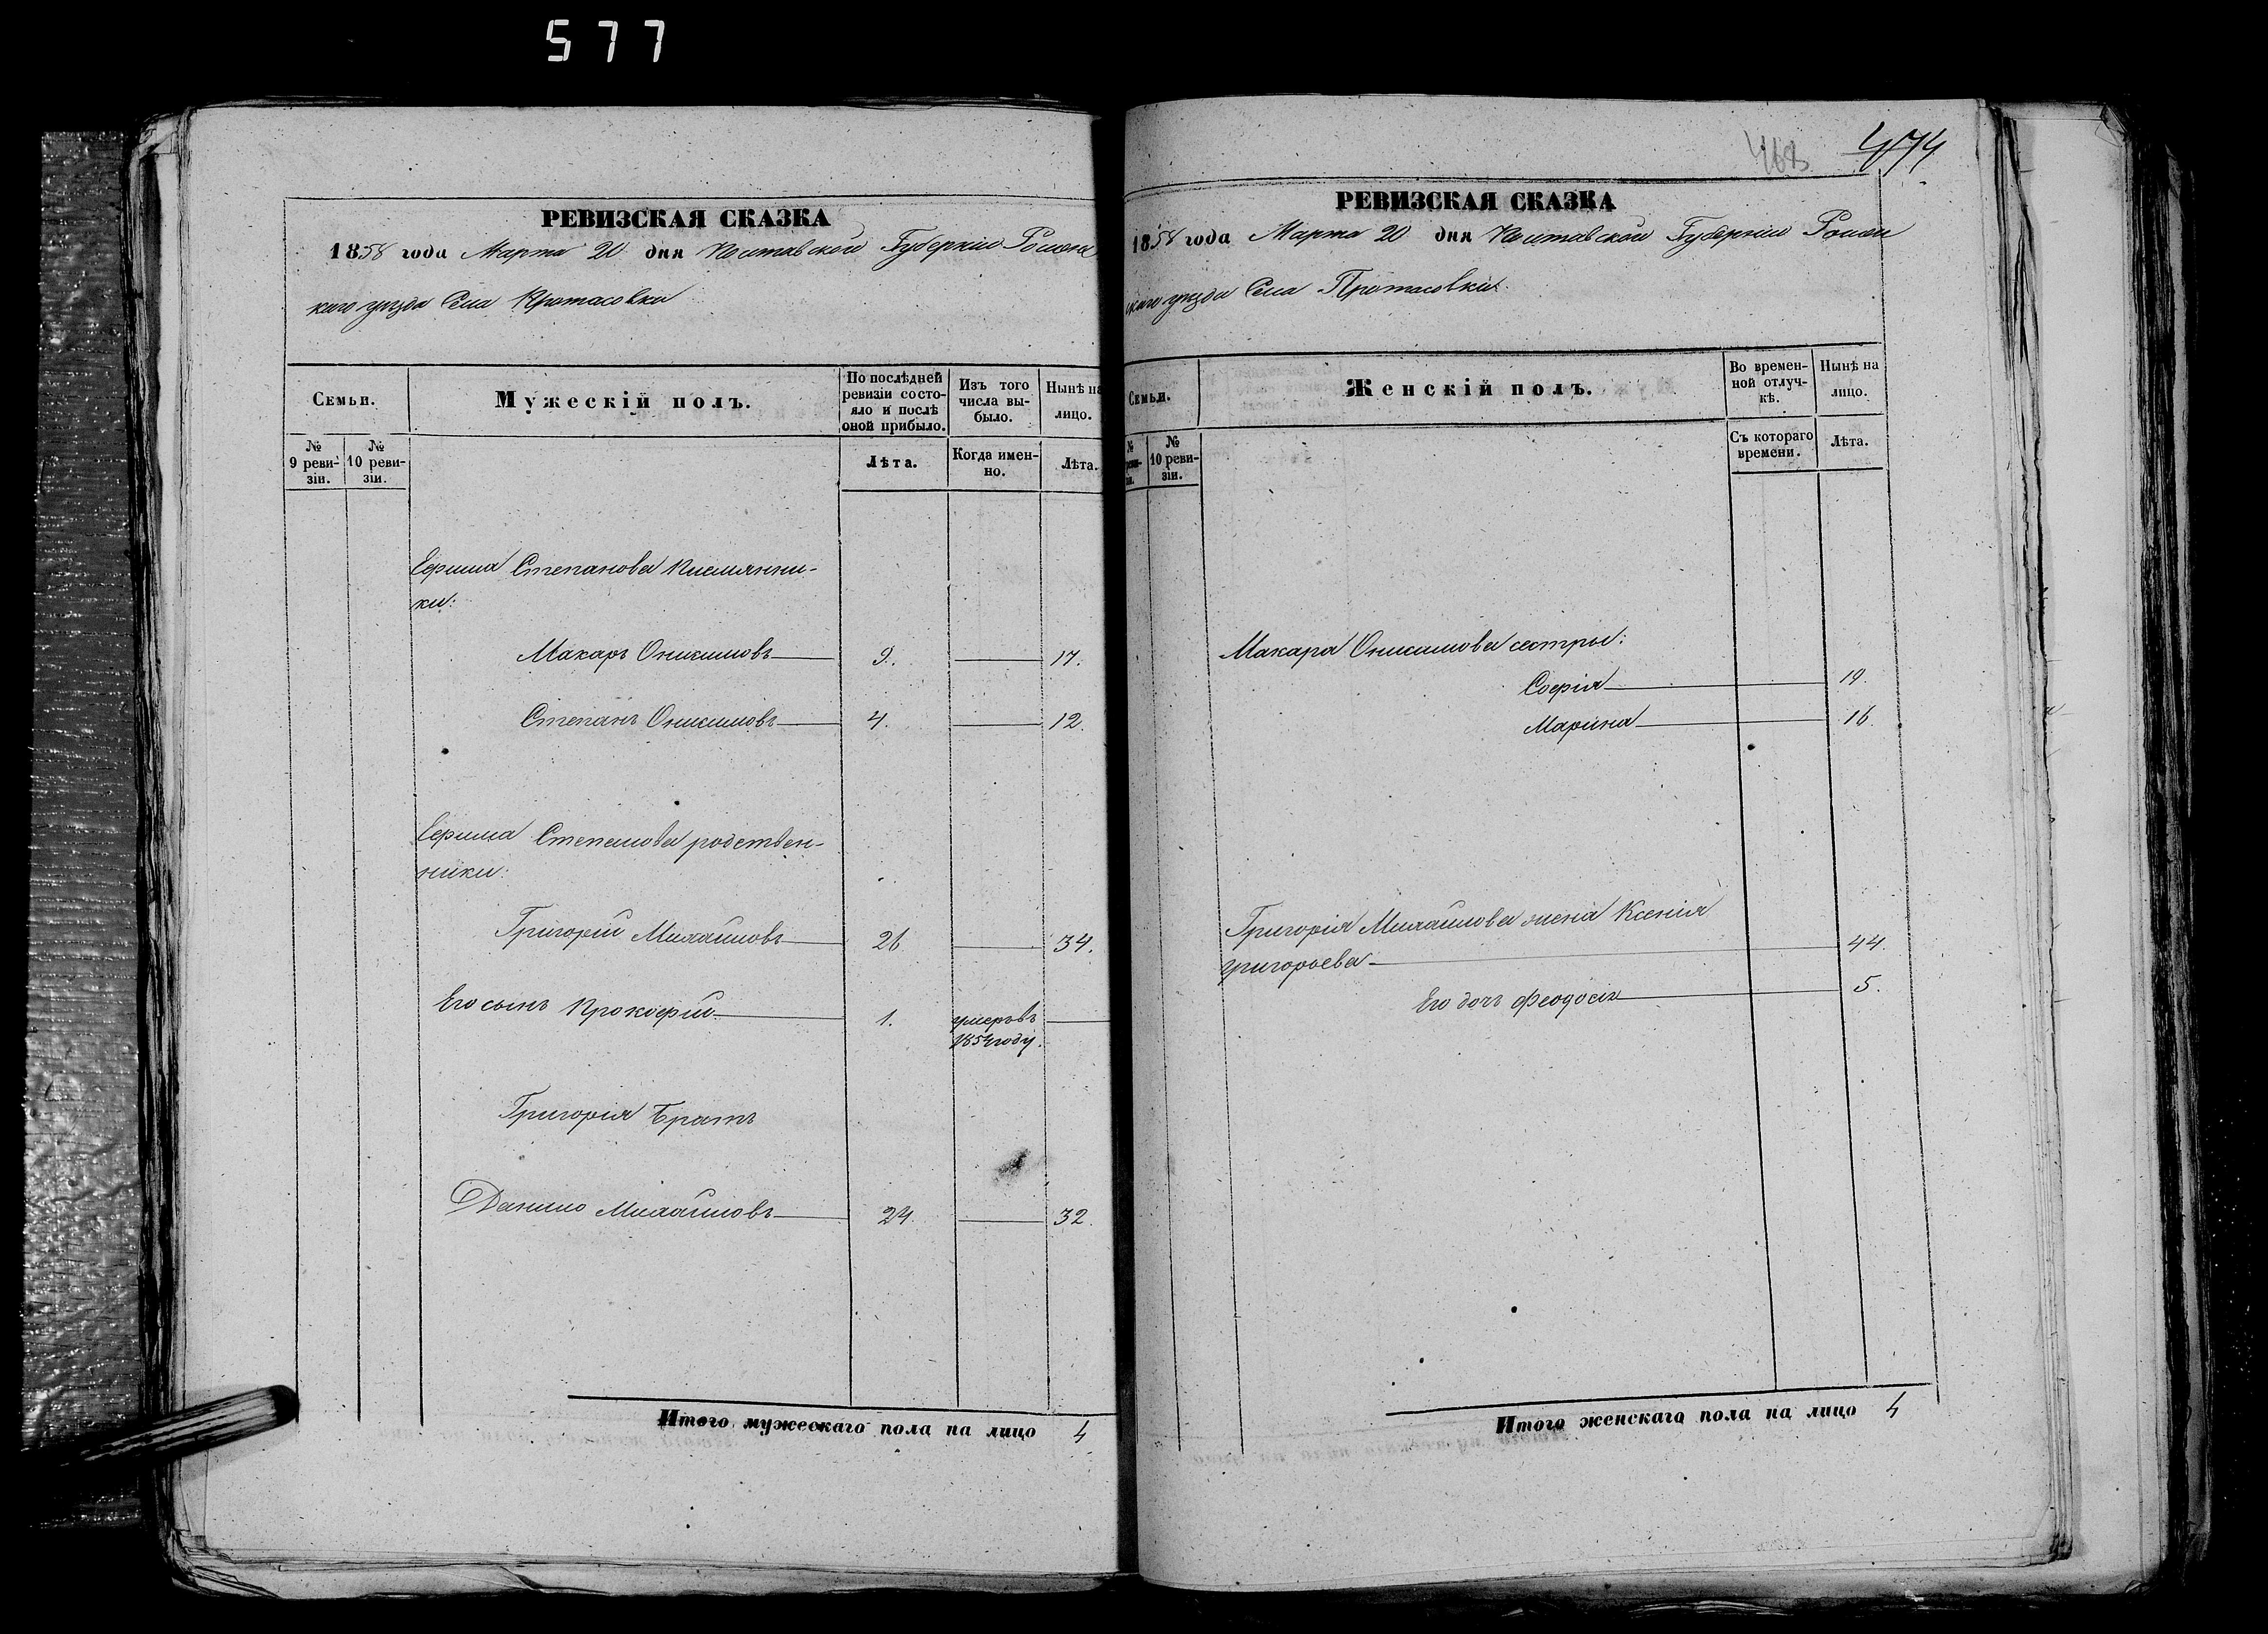 577
РЕВИЗСКАЯ СКАЗКА
1858 года Марта 20 дня Полтавской Губерніи Ромен
кого уезда Села Протасовки
Семьи.
Мужескій полъ.
По послѣдней ревизіи состояло и послѣ оной прибыло.
Изъ того числа выбыло.
Нынѣ на лицо.
№ 9 ревизіи.
№ 10 ревизіи.
Лѣта.
Когда именно.
Лѣта.
Степанова племянни-
ки:
Макаръ Онисимовъ 9. 17.
Степанъ Онисимовъ 4. 12.
Степанова родствен-
ники:
Григорій Михайловъ 26 34.
Его сынъ Прокофій 1. умеръ въ
1854 году.
Григорія Братъ
Данило Михайловъ 24. 32.
Итого мужескаго пола на лицо 4
468 474
РЕВИЗСКАЯ СКАЗКА
1858 года Марта 20 дня Полтавской Губерніи Ромен
скаго уезда Села Протасовки
Семьи.
Женскій полъ.
Во временной отлучкѣ.
Нынѣ на лицо.
№ 10 ревизіи.
Съ котораго времени.
Лѣта.
Макара Онисимова сестры:
Софія 19.
Марина 16.
Григорія Михайлова жена Ксенія
Григорьева 44.
Его дочь Феодосія 5.
Итого женскаго пола на лицо 4